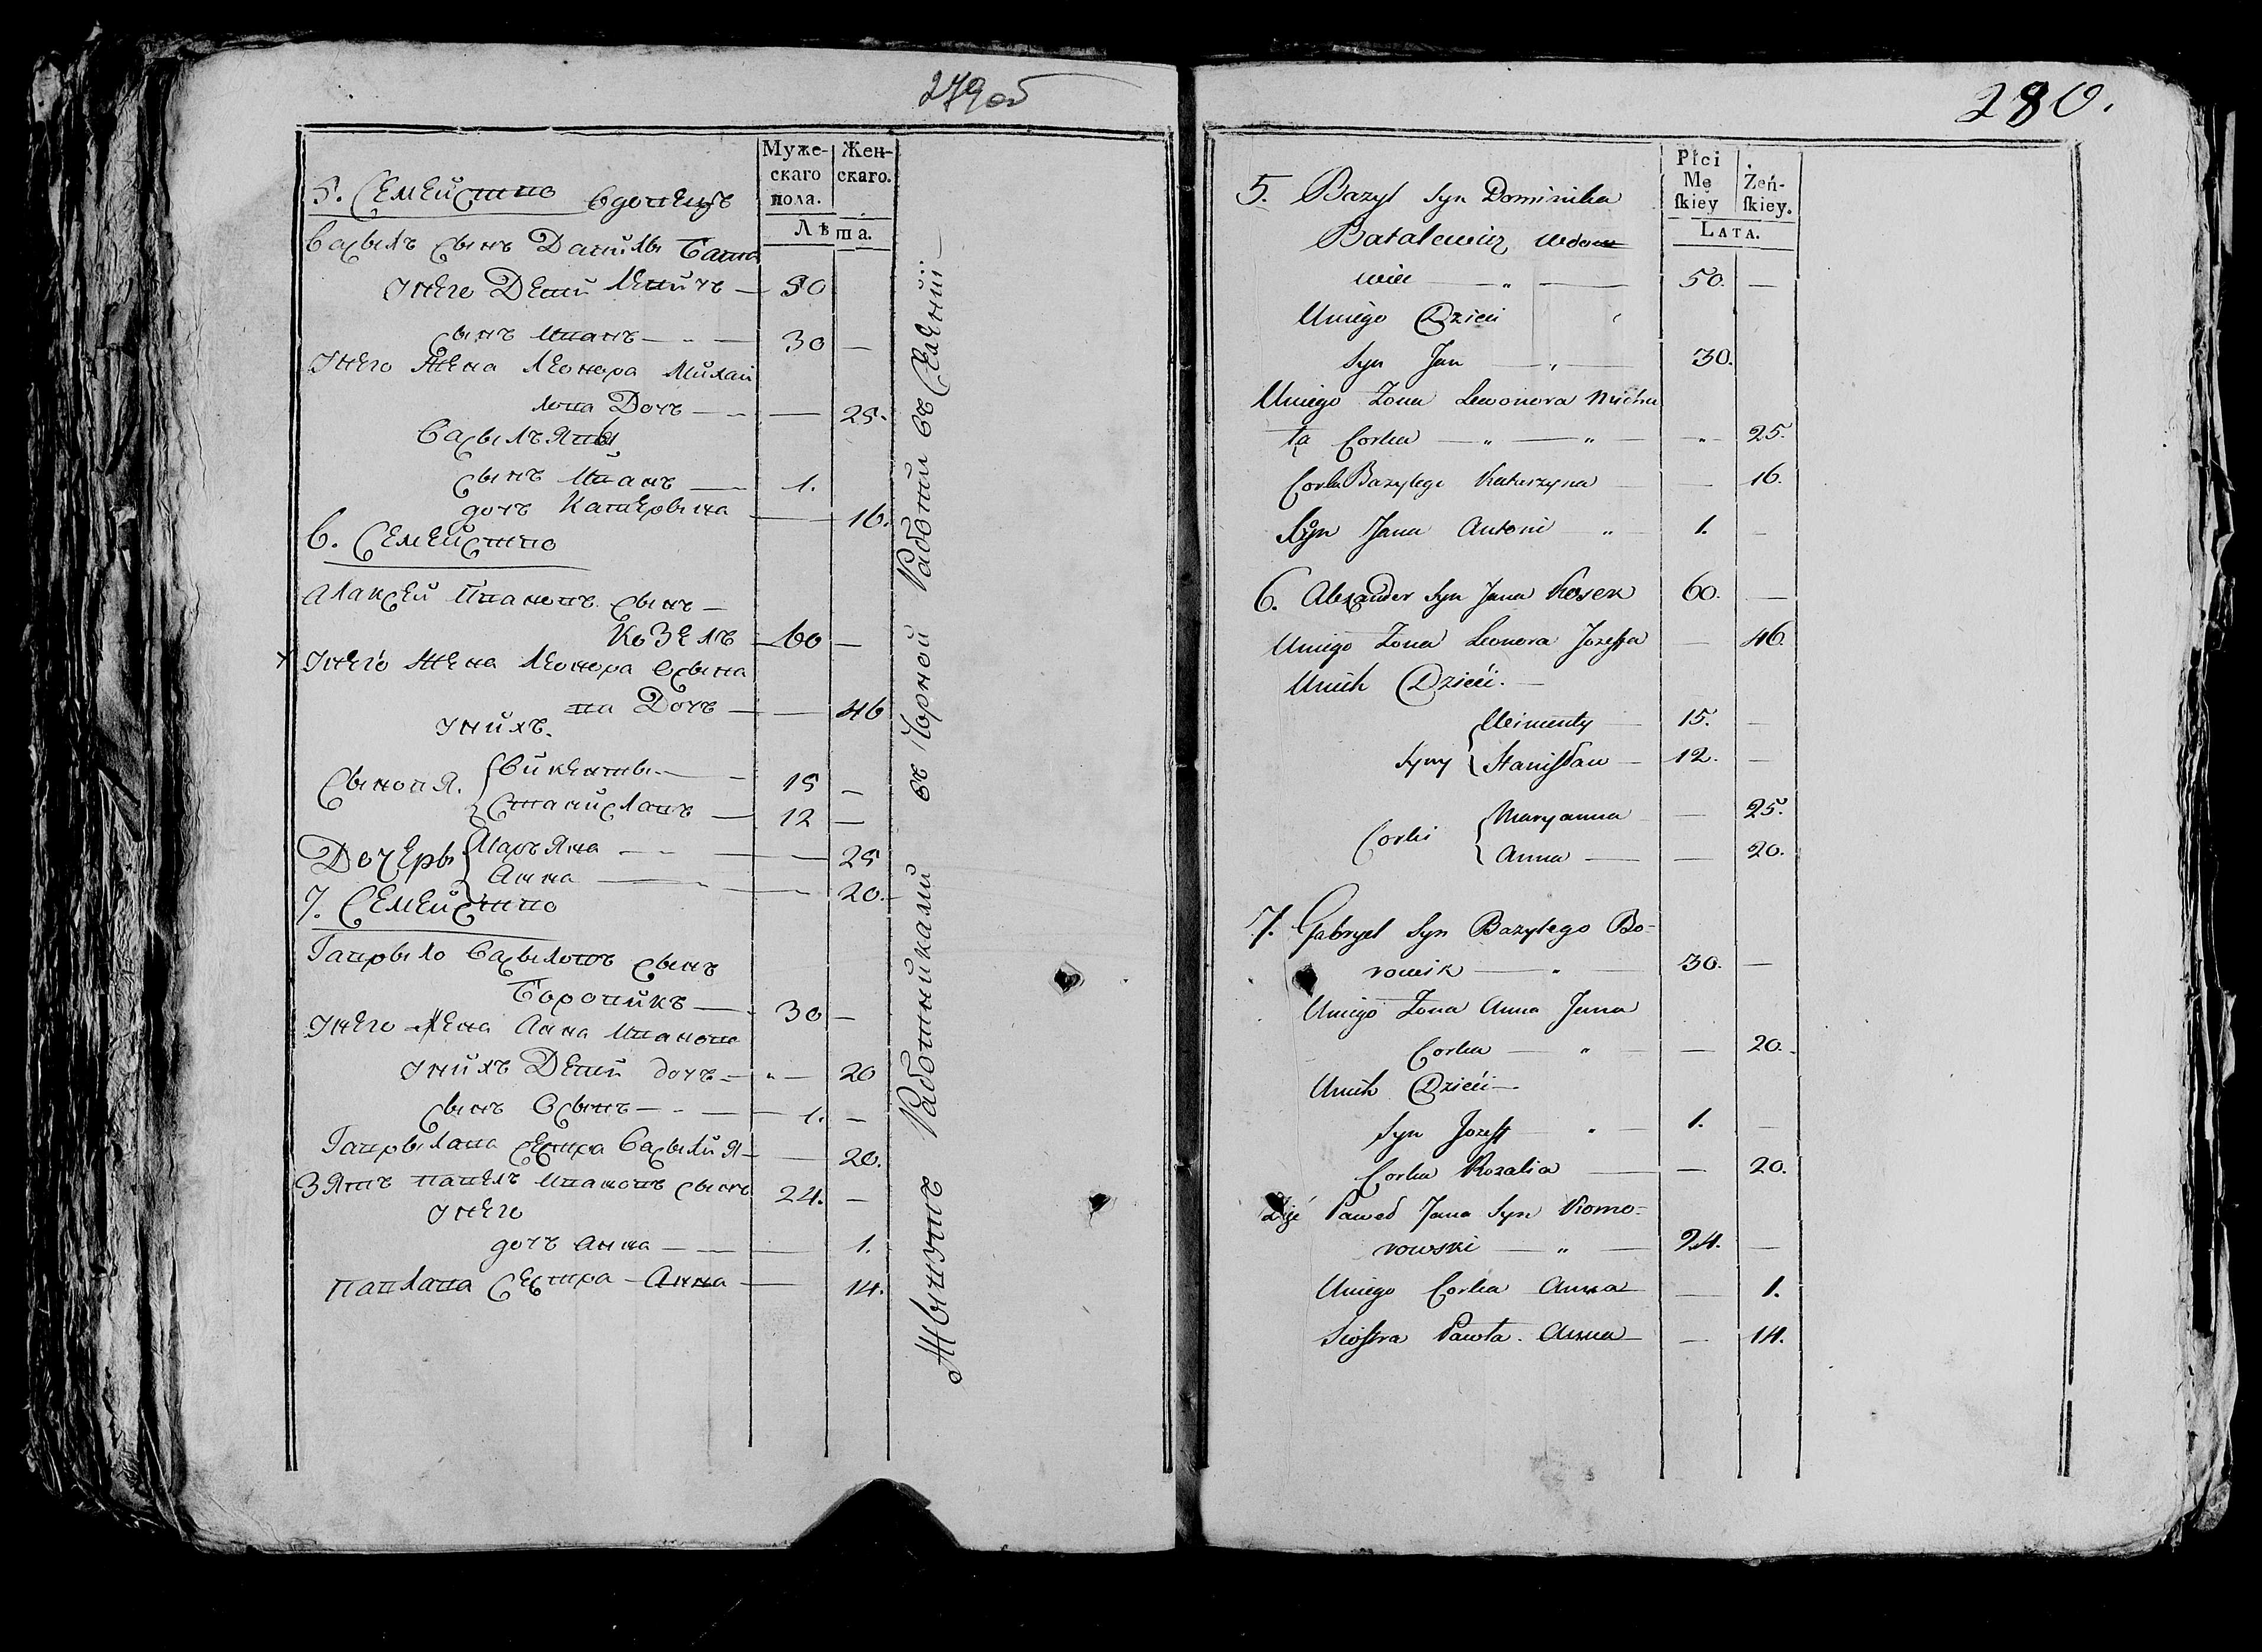 279об
Муже-
скаго
пола.
Жен-
скаго.
Лѣта.
5. Семейство вдовецъ
Василъ сынъ Данилы Бата
левичъ — 50
Унего Дети
сынъ Иванъ — 30 —
Унего Жена Леонора Михай
лова Дочъ — — 25.
Василъявы
сынъ Иванъ — 1.
дочъ Катерына — 16.
6. Семейство
Алаксей Ивановъ сынъ —
Козелъ — 60 —
Унего Жена Леонора Осына
ва Дочъ — — 46
Унихъ.
Сыновя. Викенты — 15 —
Станиславъ — 12 —
Дочеры Маръяна — — 25
Анна — — 20.
7. Семейство
Гаврыло Васылювъ сынъ
Боровикъ — 30 —
Унего Жена Анна Иванова
дочъ — „ — 20
Унихъ Дети
сынъ Осыпъ — 1. —
Гаврылава сестра Васылия — — 20.
Зятъ Павелъ Ивановъ сынъ 24. —
Унего
дочъ Анна — — 1.
Павлава сестра — Анна — 14.
Жывутъ Работниками въ Чорной Работи въ Селении —
280.
Płci
Mę
skiey
Żeń-
skiey.
LATA.
5. Bazyl Syn Dominika
Batalewicz wdow
wiec — „ — 50. —
Uniego Dzieci
Syn Jan — „ — 30.
Uniego Zona Lewonora Micha
ła Corka — „ — „ — „ — 25.
Corka Bazylego Katarzyna — — 16.
Syn Jana Antoni — „ 1. —
6. Alexander Syn Jana Koseк 60. —
Uniego Zona Leonora Jozeffa — 46.
Unich Dzieći. —
Syny Klimenty — 15. —
Stanisław — 12. —
Corki Maryanna — 25.
Anna — — 20.
7. Gabryel Syn Bazylego Bo-
rowik — „ — 30. —
Uniego Zona Anna Jana
Corka — „ — — 20.
Unich Dzieći —
Syn Jozeff — „ — 1. —
Corka Rozalia — — 20.
Zięć Paweł Jana Syn Komo-
rowski — „ — 24. —
Uniego Corka Anna — 1.
Siostra Pawła. Anna — — 14.